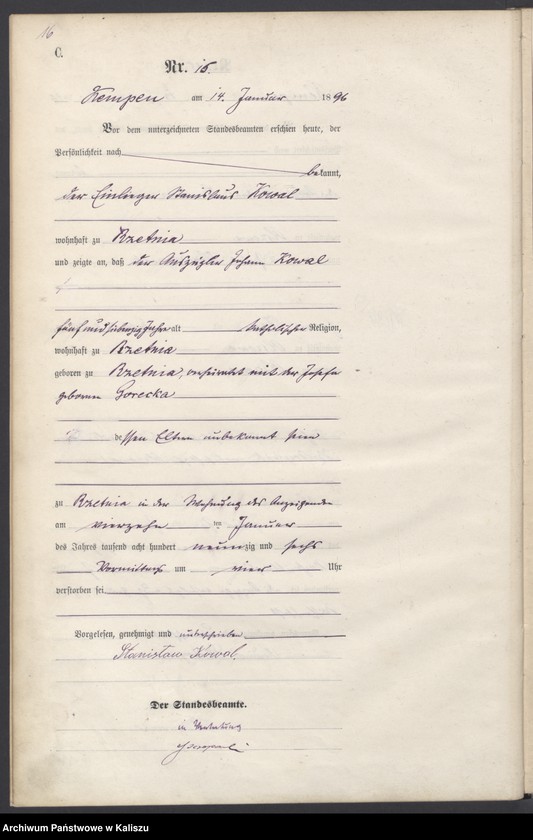 16
C.
Nr. 16.
Kempen am 14. Januar 1896
Vor dem unterzeichneten Standesbeamten erschien heute, der
Persönlichkeit nach
bekannt,
der Einlieger Stanislaus Kowal
wohnhaft zu Rzetnia
und zeigte an, daß der Auszügler Johann Kowal
fünfundsiebenzig Jahre alt katholischer Religion,
wohnhaft zu Rzetnia
geboren zu Rzetnia, verheirathet mit der Josefa
geborenen Gorecka
dessen Eltern unbekannt sein
zu Rzetnia in der Wohnung des Anzeigenden
am vierzehn ten Januar
des Jahres tausend acht hundert neunzig und sechs
Vormittags um vier Uhr
verstorben sei
Vorgelesen, genehmigt und unterschrieben
Stanisław Kowal.
Der Standesbeamte.
in Vertretung
Archiwum Państwowe w Kaliszu